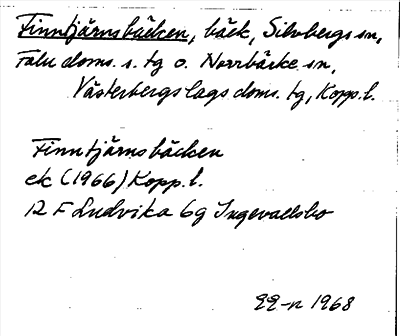 Finntjärnsbäcken, bäck, Silvbergs sn,
Falu doms. s. tg o. Norrbärke sn,
Västerbergslags doms. tg, Kopp. l.
Finntjärnsbäcken
ek (1966) Kopp. l.
12 F Ludvika 6g Ingevallsbo
22-n 1968